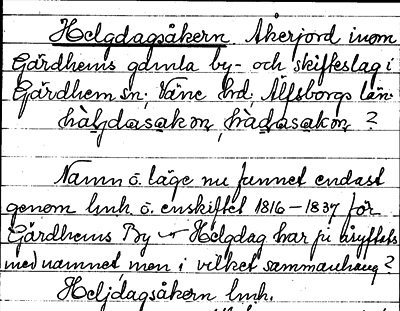 Helgdagsåkern Åkerjord inom
Gärdhems gamla by- och skifteslag i
Gärdhem sn; Väne hd; Älfsborgs län.
hàl̨dasakon, hàdasakon ?
Namn o. läge nu funnet endast
genom lmh. o. enskiftet 1816-1837 för
Gärdhems By Helgdag har ju åsyftats
med namnet, men i vilket sammanhang?
Heljdagsåkern lmh.